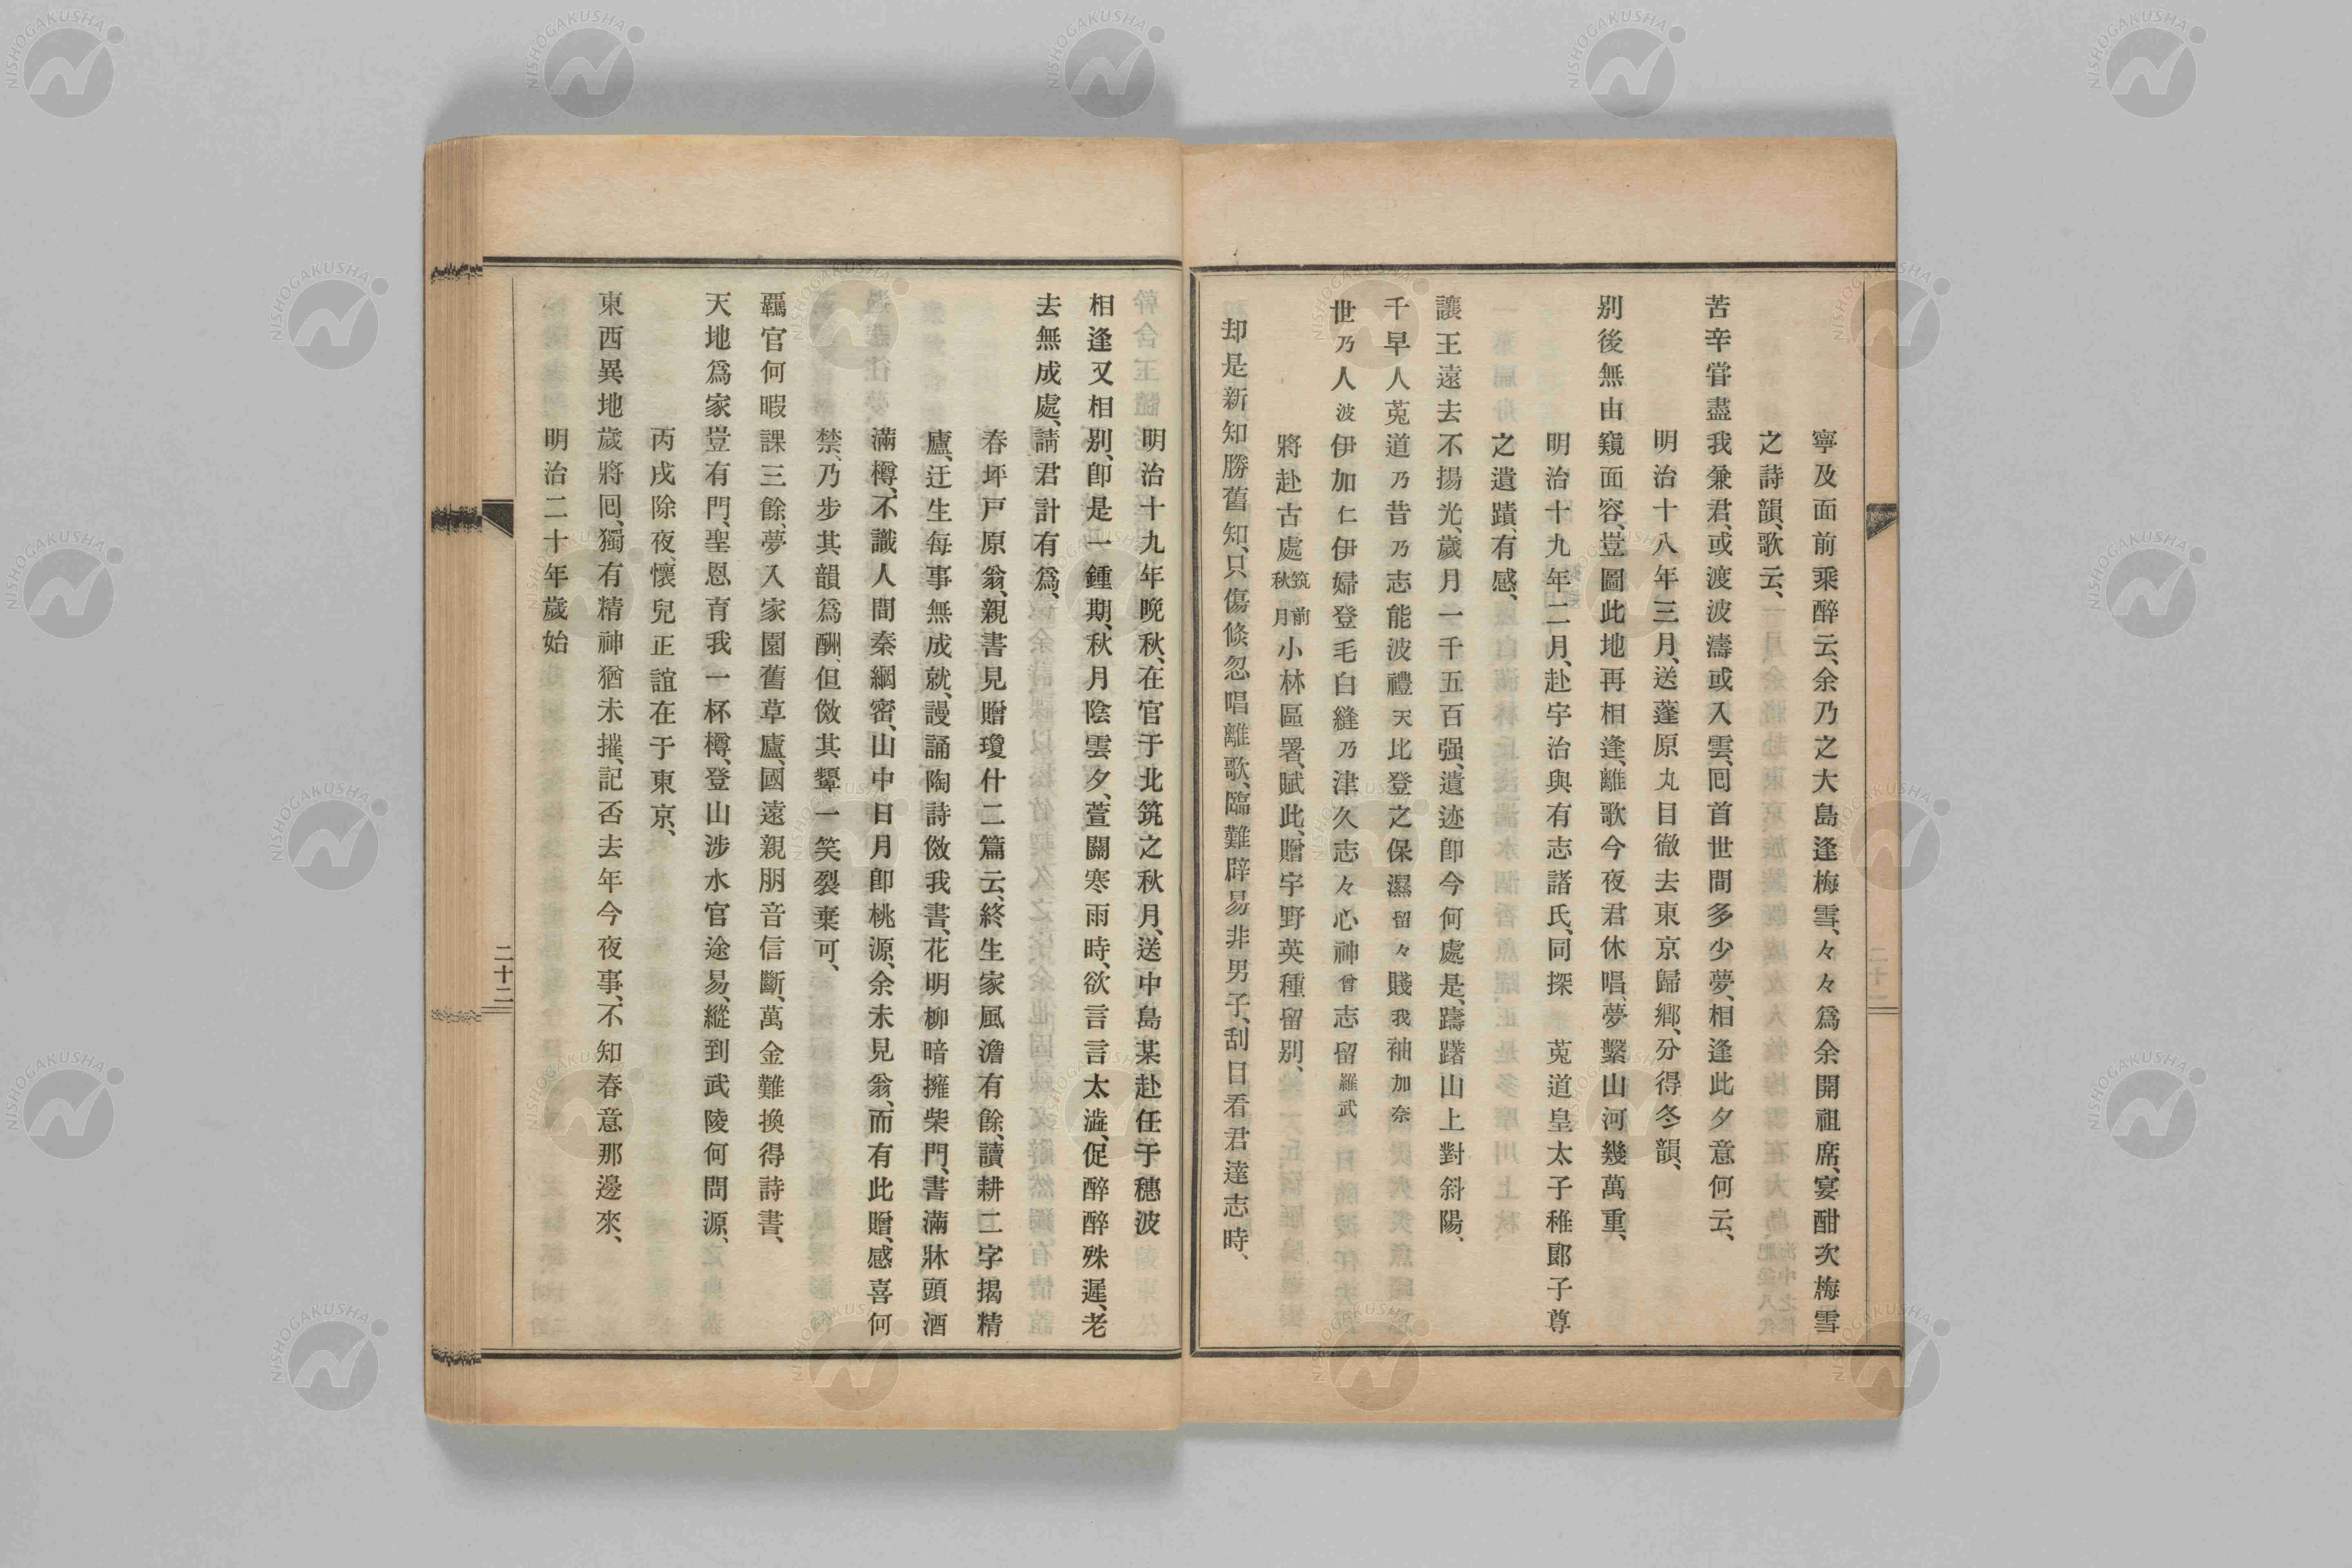 寧及面前乘醉云、余乃之大島逢梅雪、々々爲余開祖席、宴酣次梅雪
之詩韻、歌云、
苦辛甞盡我兼君、或渡波濤或入雲、囘首世間多少夢、相逢此夕意何云、
明治十八年三月、送蓬原丸目徹去東京歸鄉、分得冬韻、
別後無由窺面容、豈圖此地再相逢、離歌今夜君休唱、夢繫山河幾萬重、
明治十九年二月、赴宇治與有志諸氏、同探　菟道皇太子稚郎子尊
之遺蹟、有感、
讓王遠去不揚光、歲月一千五百强、遺迹卽今何處是、躊躇山上對斜陽、
千早人菟道乃昔乃志能波禮天比登之保濕留々賤我袖加奈
世乃人波伊加仁伊婦登毛白縫乃津久志々心神曾志留羅武
將赴古處筑前秋月小林區署、賦此、贈宇野英種留別、
却是新知勝舊知、只傷倏忽唱離歌、臨難辟易非男子、刮目看君達志時、
明治十九年晩秋、在官于北筑之秋月、送中島某赴任于穗波
相逢又相別、卽是一鍾期、秋月陰雲夕、萱關寒雨時、欲言言太澁、促醉醉殊遲、老
去無成處、請君計有爲、
春坪戸原翁、親書見贈瓊什二篇云、終生家風澹有餘、讀耕二字揭精
廬、迂生每事無成就、謾誦陶詩傚我書、花明柳暗擁柴門、書滿牀頭酒
滿樽、不識人間秦網密、山中日月卽桃源、余未見翁、而有此贈、感喜何
禁、乃步其韻爲酬、但傚其顰一笑裂棄可、
羈官何暇課三餘、夢入家園舊草廬、國遠親朋音信斷、萬金難換得詩書、
天地爲家豈有門、聖恩育我一杯樽、登山涉水官途易、縱到武陵何問源、
丙戌除夜、懷兒正誼在于東京、
東西異地歲將囘、獨有精神猶未摧、記否去年今夜事、不知春意那邊來、
明治二十年歲始
二十二